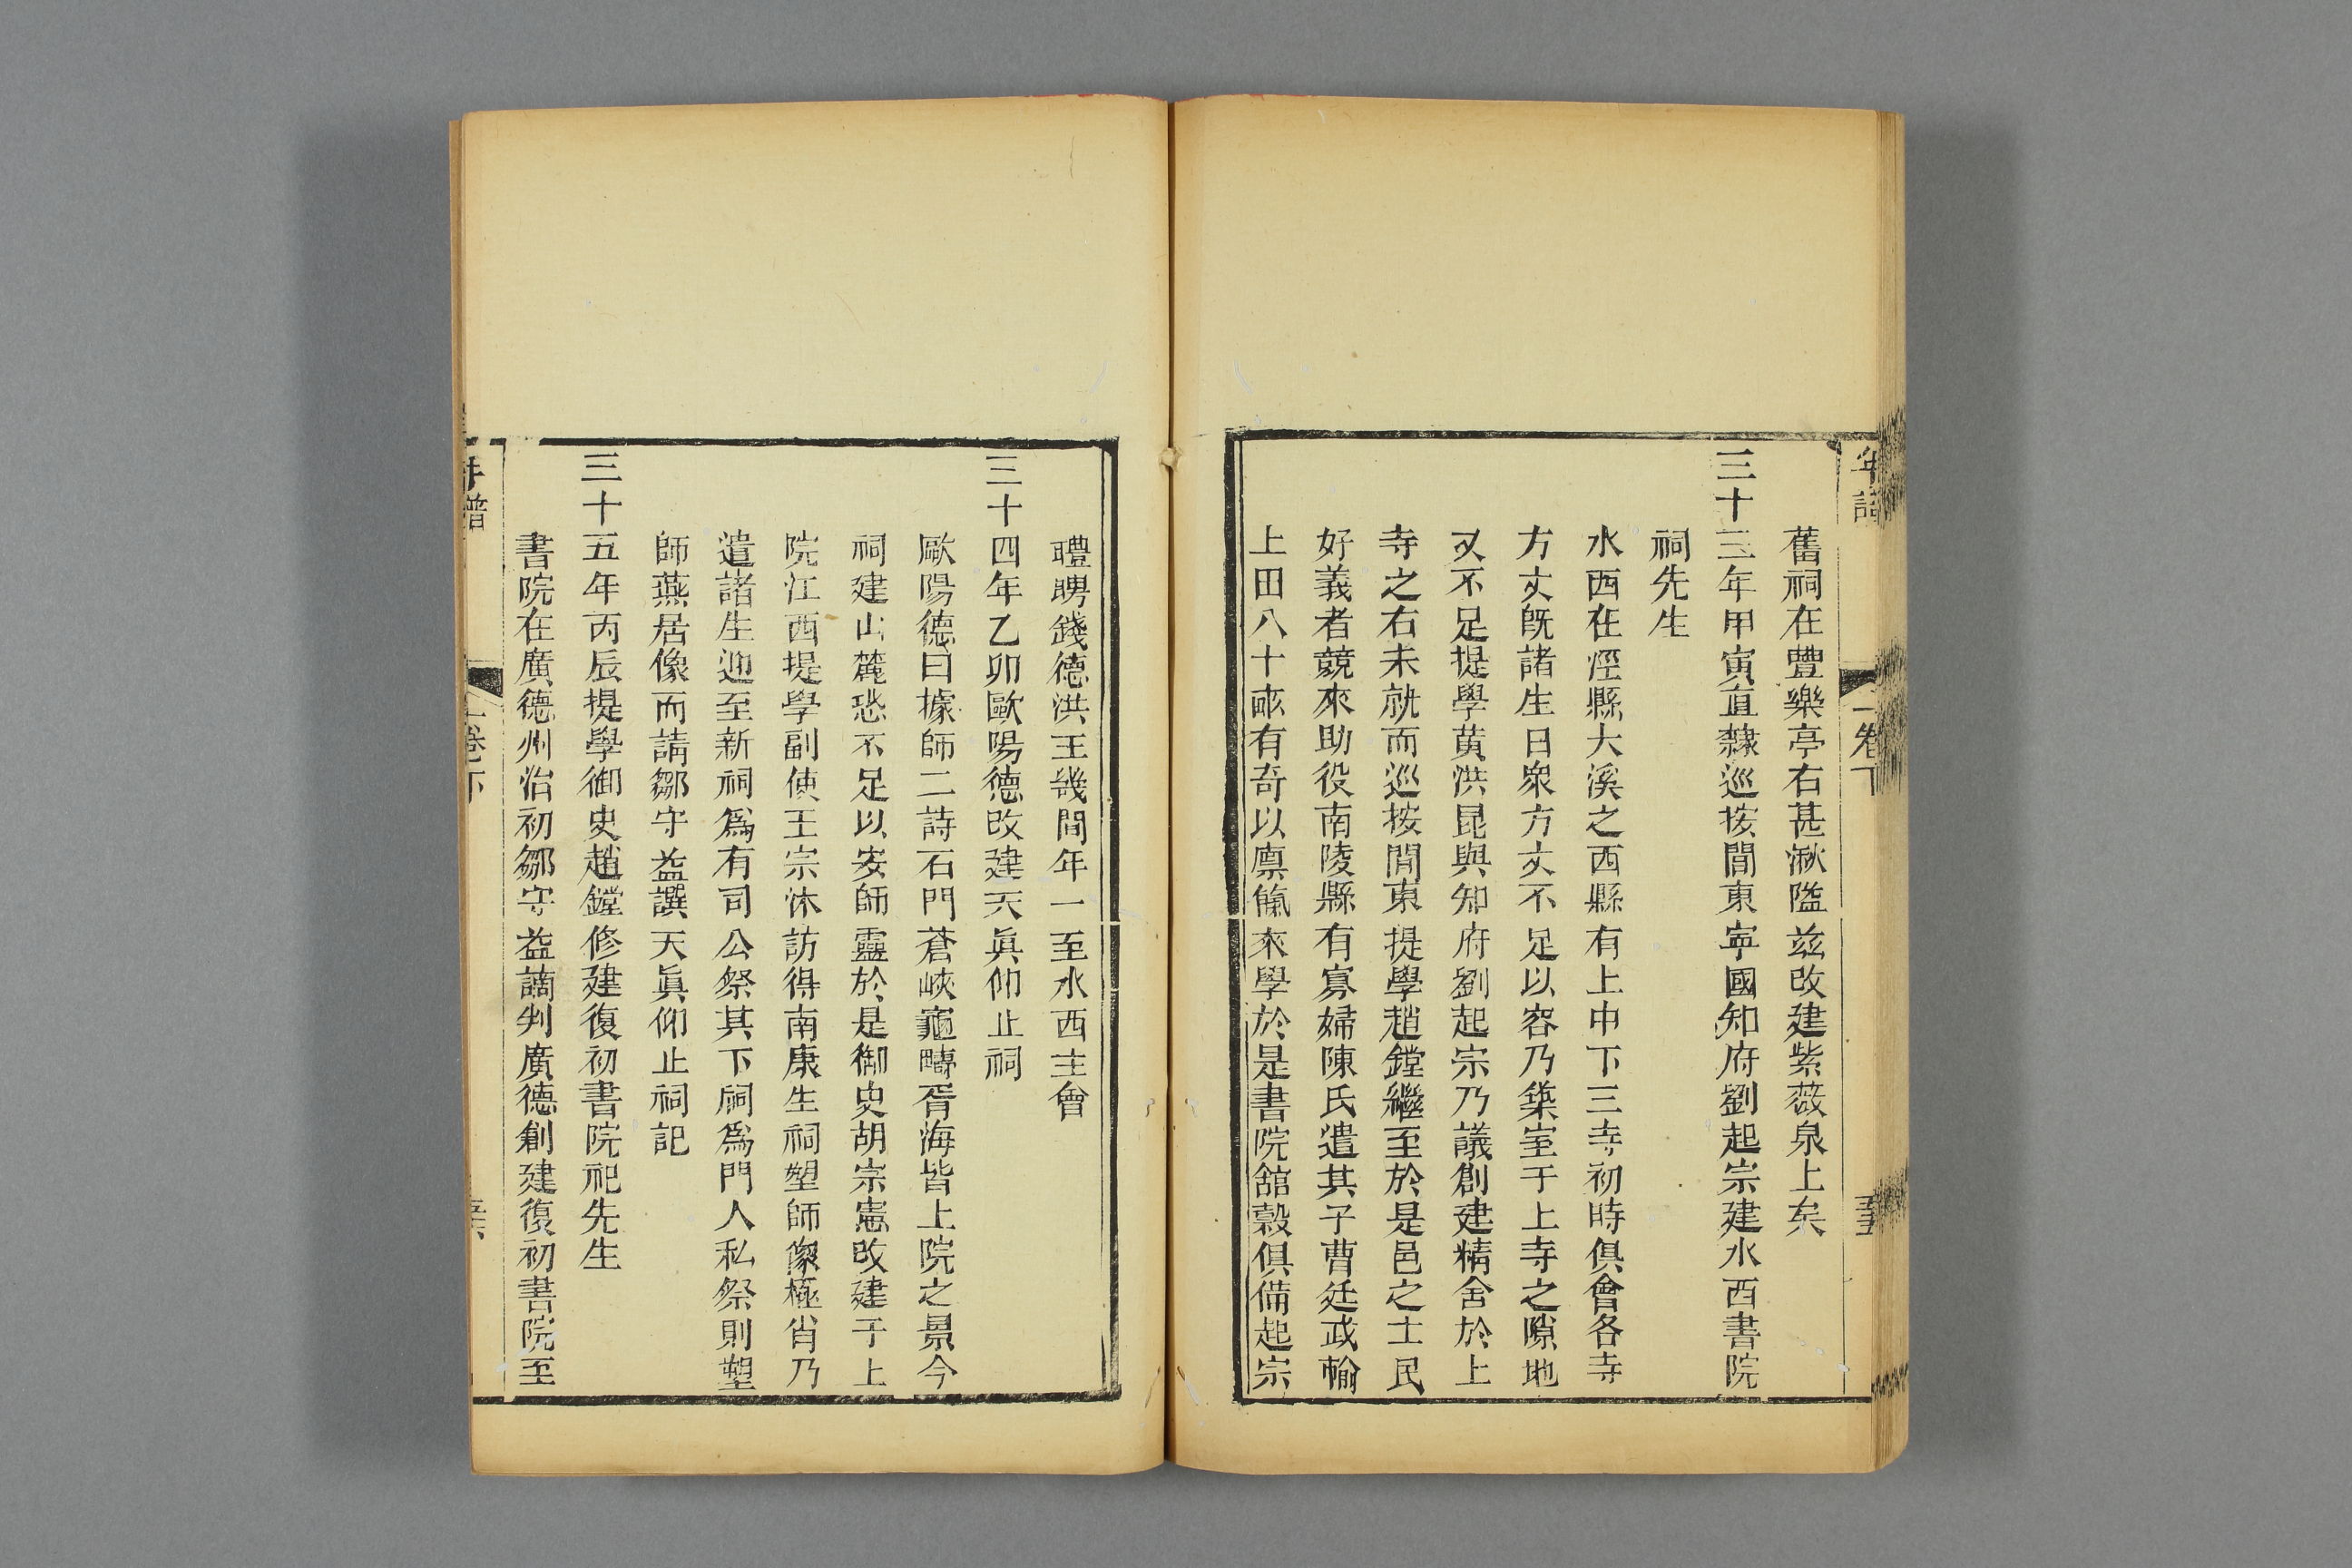 年譜
卷下
舊祠在豐樂亭右甚湫隘兹改建紫薇泉上矣
三十三年甲寅直隸巡按閭東寜國知府劉起宗建水西書院
祠先生
水西在涇縣大溪之西縣有上中下三寺初時俱會各寺
方丈旣諸生日衆方丈不足以容乃築室于上寺之隙地
又不足提學黄洪毘與知府劉起宗乃議創建精舍於上
寺之右未就而巡按閭東提學趙鏜繼至於是邑之士民
好義者競來助役南陵縣有寡婦陳氏遣其子曹廷武輸
上田八十畝有奇以廪餼來學於是書院舘穀俱備起宗
禮聘錢德洪王畿間年一至水西主會
三十四年乙卯歐陽德改建天眞仰止祠
歐陽德曰據師二詩石門蒼峽龜疇胥海皆上院之景今
祠建山麓恐不足以安師靈於是御史胡宗憲改建于上
院江西提學副使王宗沐訪得南康生祠塑師像極肖乃
遣諸生迎至新祠爲有司公祭其下祠爲門人私祭則塑
師燕居像而請鄒守益譔天眞仰止祠記
三十五年丙辰提學御史趙鏜修建復初書院祀先生
書院在廣德州治初鄒守益謫判廣德創建復初書院至
年譜
卷下